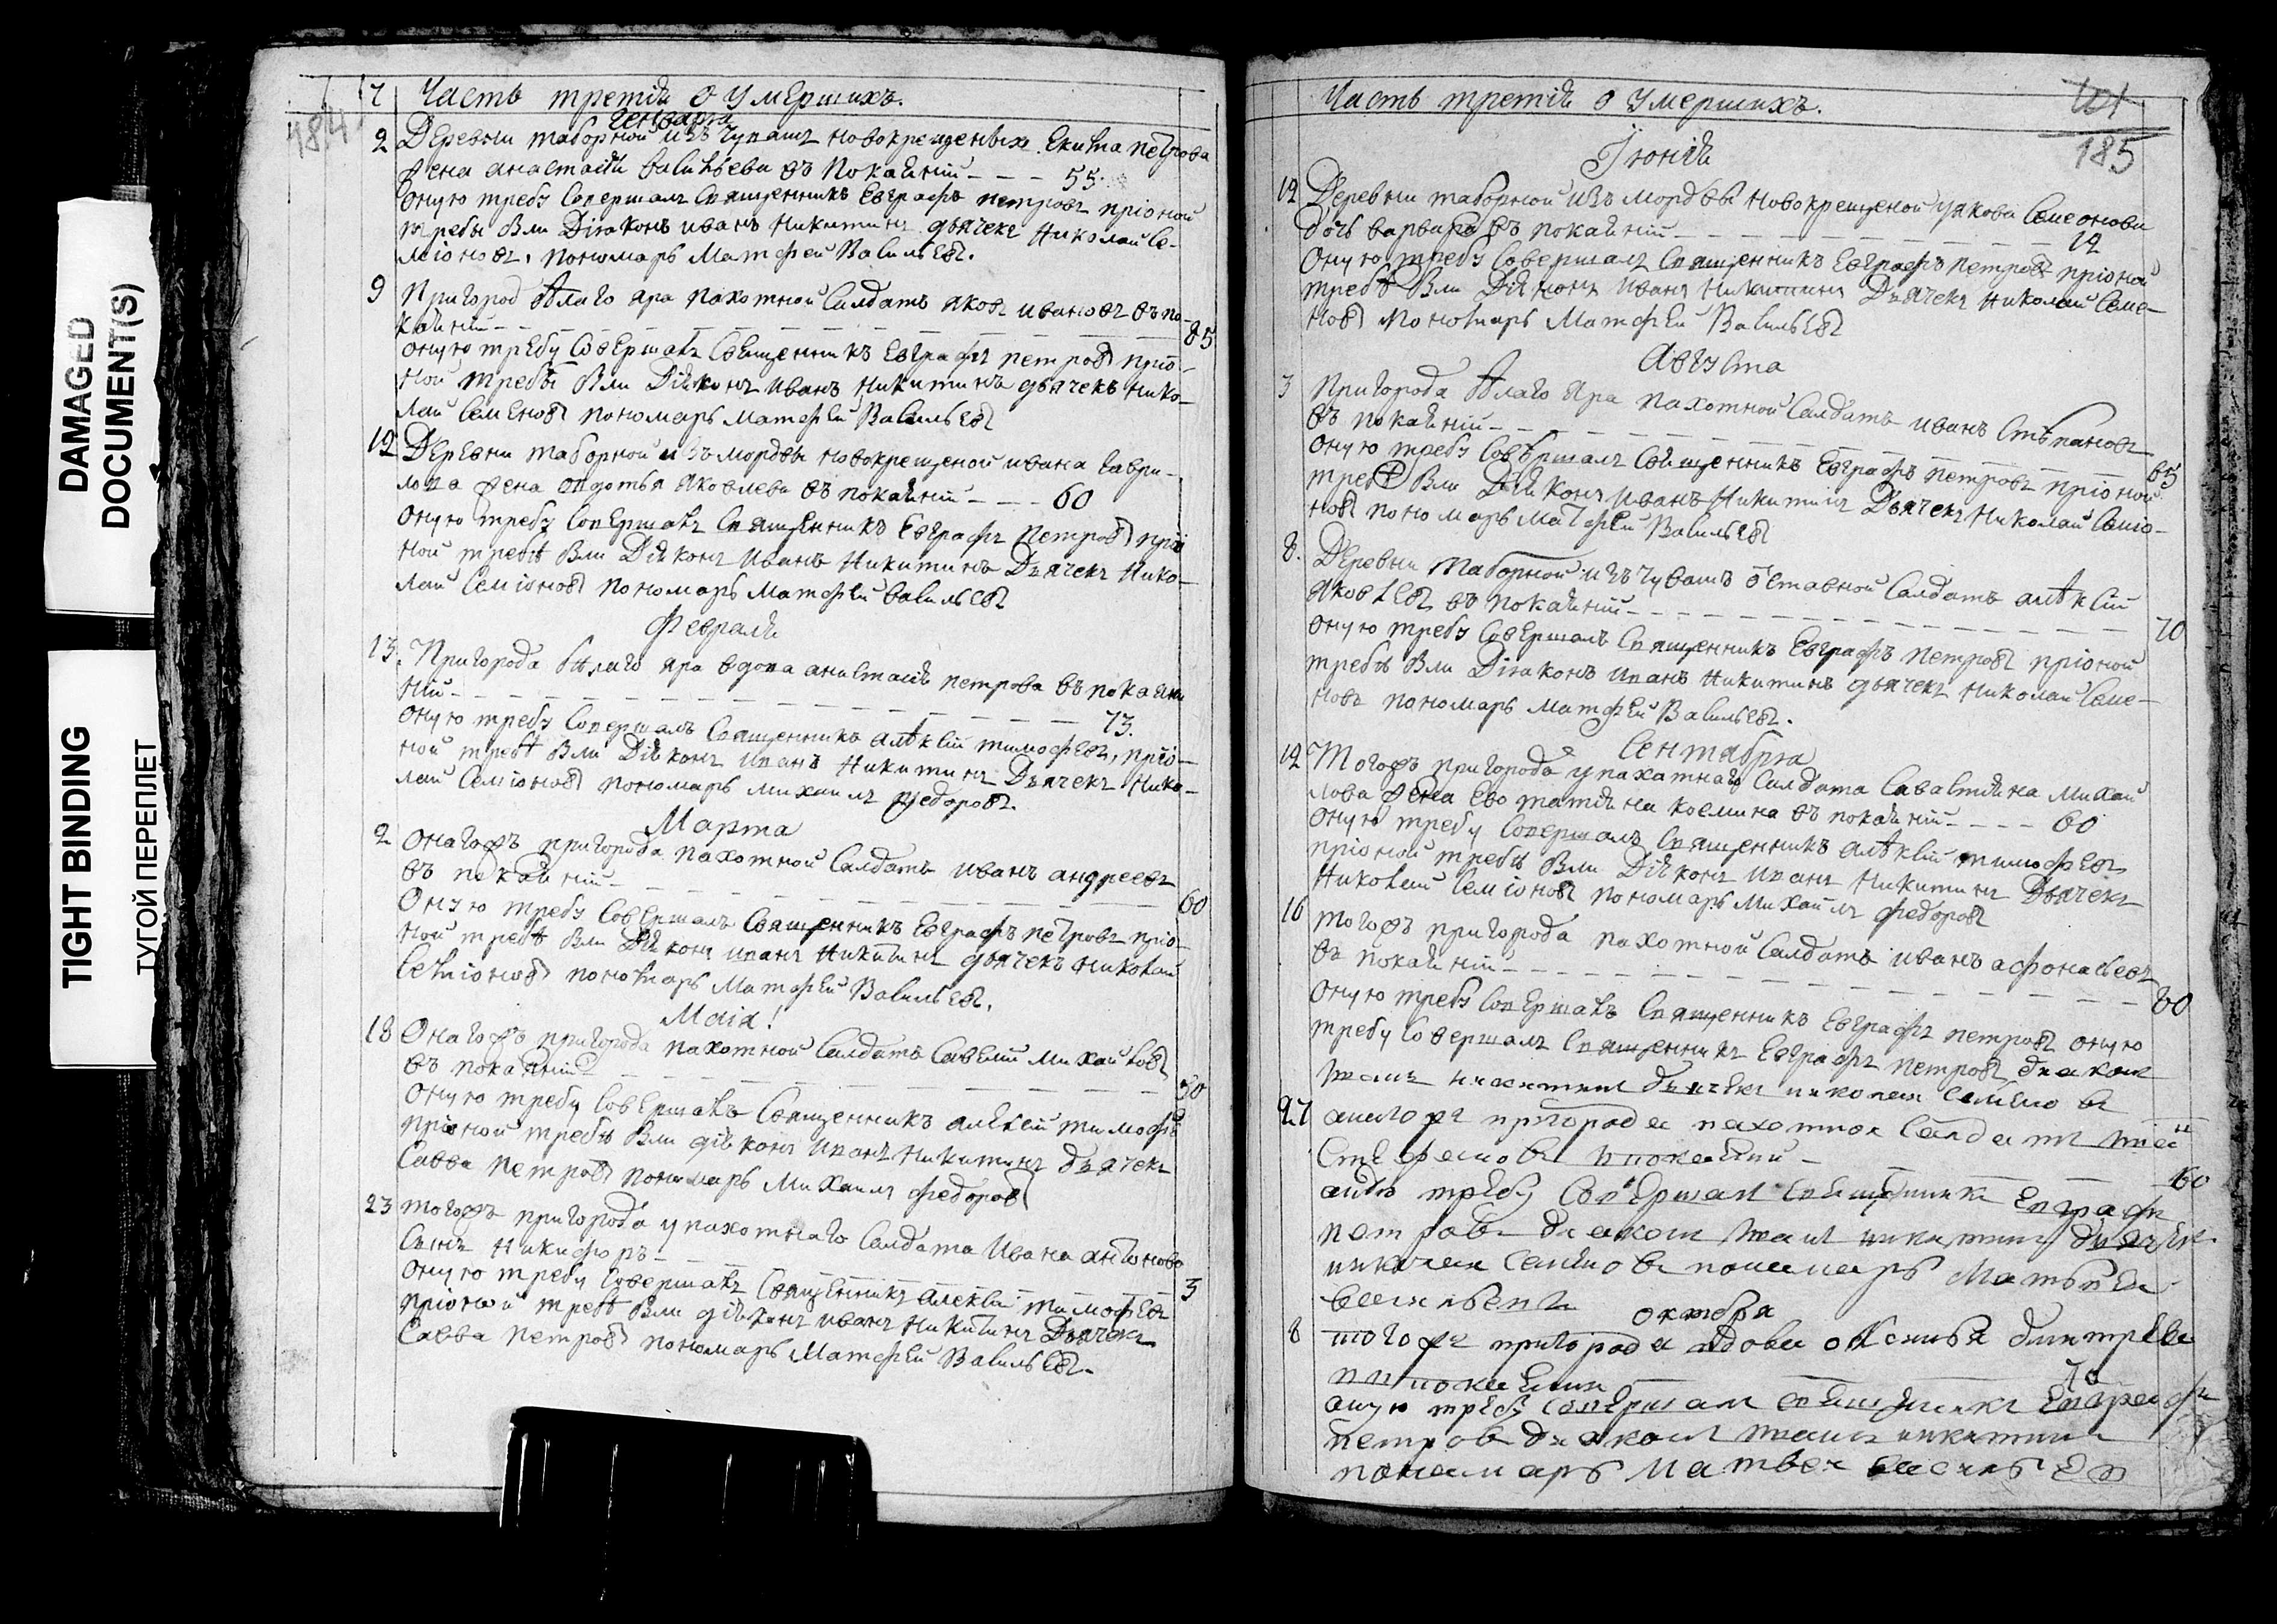 DAMAGED
DOCUMENT(S)
TIGHT BINDING
ТУГОЙ ПЕРЕПЛЕТ
7 Часть третія О Умершихъ.
Генваря
2 Деревни таборной изъ Чувашъ новокрещенныхъ Петрова
жена анастасія василъева въ Покаяніи - - - 55
оную требу совершалъ священникъ Евграфъ петровъ пріоной
требы были Діаконъ иванъ никитинъ дьячекъ Николай Се-
міоновъ, пономарь Матфеи Василъевъ.
9 Пригород Ѣлаго яра пахотной Салдатъ яковъ ивановъ въ по-
каяніи - - 85
оную требу совершалъ священникъ Евграфъ петровъ пріо-
ной требы были Діяконъ иванъ никитинъ дьячекъ нико-
лаи Семеновъ пономарь матфеи Василъевъ
12 Деревни таборной изъ мордвы новокрещеной ивана Гаври-
лова жена овдотья яковлева въ покаяніи - - - 60
оную требу совершалъ священникъ Евграфъ Петровъ прио
ной требѣ были Діяконъ иванъ Никитинъ Дьячекъ Нико-
лаи Семіоновъ пономарь матфеи василъевъ
Февраля
13. Пригорода бѣлаго яра вдова анастасія петрова въ покаяни
ніи - - - 73.
оную требу совершалъ Священникъ алѣксіи тимофѣевъ, пріо-
ной требѣ были Діяконъ иванъ Никитинъ Дьячекъ Нико-
лаи Семіоновъ пономарь михаилъ федоровъ.
Марта
2 онагожъ пригорода пахотной Салдатъ иванъ андреевъ
въ покаяніи - - - 60
Оную требу Совершалъ Священникъ Евграфъ петровъ пріо-
ной требѣ были Діяконъ иванъ Никитинъ дьячекъ николаи
Семіоновъ пономарь Матфеи Василъевъ.
Маія!
18 Онагожъ пригорода пахотной Салдатъ Савелии михаиловъ
въ покаяніи - - - 50
Оную требу совершалъ Священникъ алексіи тимофѣ
пріоной требы были діяконъ иванъ никитинъ дьячекъ
Савва петровъ пономарь Михаилъ федоровъ
23 тогожъ пригорода у пахотнаго Салдата Ивана антонова
Сынъ Никифоръ - - 3
оную требу совершалъ священникъ алексіи тимофѣевъ
пріоной требѣ были діяконъ иванъ никитинъ Дьячекъ
Савва Петровъ пономарь Матфеи Василъевъ.
Часть третія О Умершихъ.
185
Іюнія
12 Деревни таборной изъ мордвы новокрещеной у якова Семеонова
дочь варвара въ покаяніи - - - 12
Оную требу Совершалъ Священникъ Евграфъ петровъ пріоной
требѣ были Діяконъ иванъ никитинъ Дьячекъ николаи Семе-
новъ Пономарь Матфеи Василъевъ
Августа
3 Пригорода Ѣлаго Яра пахотной Салдатъ иванъ Стѣпановъ
въ покаяніи - - - 65
оную требу Совершалъ Священникъ Евграфъ петровъ пріоной
требѣ были Діяконъ иванъ Никитинъ Дьячекъ Николаи Семіо-
новъ пономарь матфеи Василъевъ
8. Деревни таборной изъ чувашъ отставной Салдатъ алѣксіи
яковлевъ въ покаяніи - - - 70
оную требу Совершалъ Священникъ Евграфъ петровъ пріоной
требѣ были Діаконъ иванъ никитинъ дьячекъ николаи Семе-
новъ пономарь матфеи Василъевъ.
Сентабря
12 Тогожъ пригорода у пахатнаго Салдата Савастіяна михаи
лова жена ево татіяна космина въ покаяніи - - - 60
оную требу совершалъ Священникъ алѣксіи тимофѣевъ
пріоной требы были Діяконъ иванъ Никитинъ Дьячекъ
Николаи Семіоновъ пономарь Михаилъ федоровъ
16 тогожъ пригорода пахотной Салдатъ иванъ афонасьевъ
въ покаяніи - - - 80
оную требу совершалъ священникъ Евграфъ петровъ оную
требу Совершалъ Священникъ Евграфъ петровъ диаконъ
иванъ никитинъ дьячекъ николаи Семено въ
27 онагожъ пригорода пахотнои Салдатъ
въ покаянии - 60
требу Совершал священникъ Евграфъ
петровъ диаконъ иванъ никитинъ дьячек
николаи Семеновъ понамарь Матвеи
василъевъ
октобря
8 тогожъ пригорода вдова оксинья дмитрева
въ покаянии 70
оную требу совершал священникъ Евграфъ
петровъ диаконъ иванъ никитинъ
понамарь Матвеи василъевъ